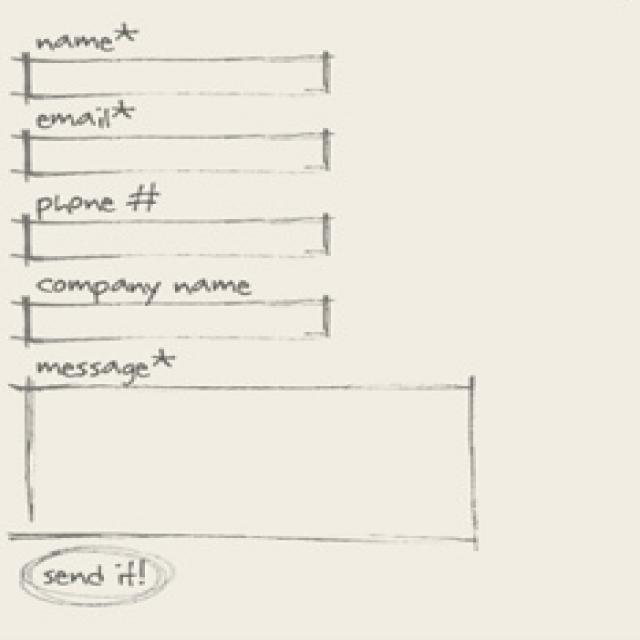 name*
email*
phone #
company name
message*
send it!